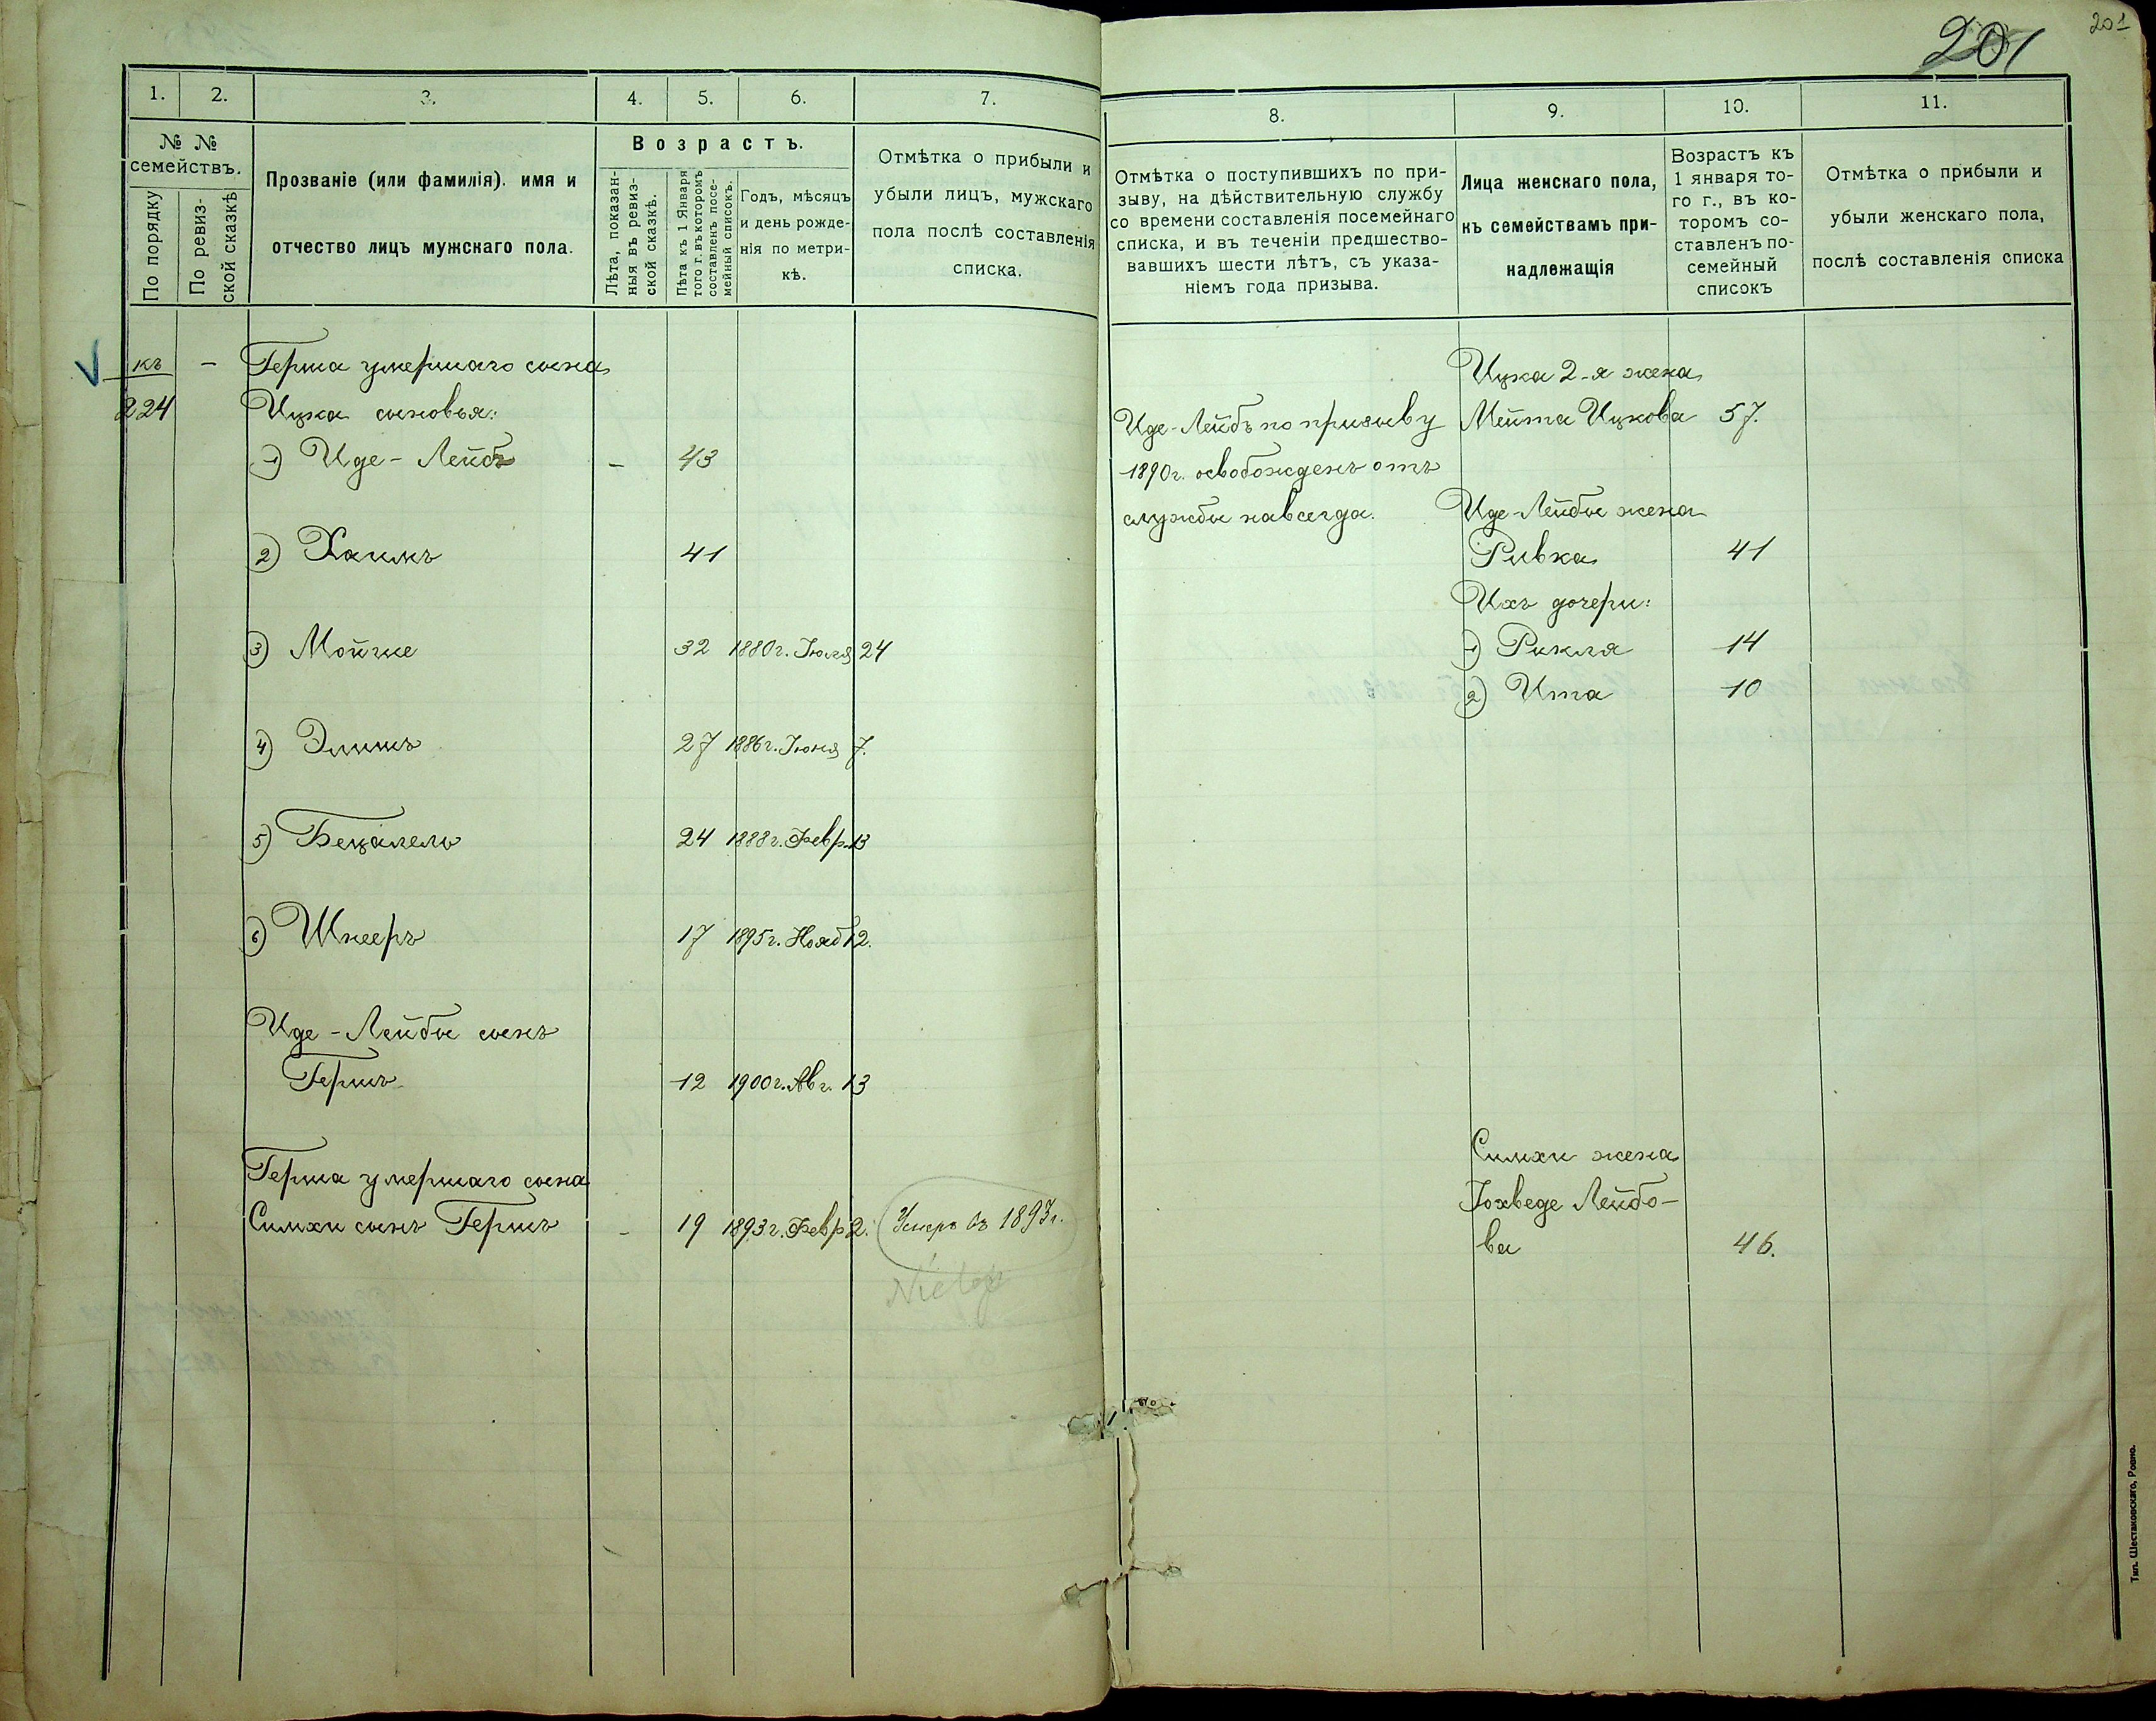 201
201
1. 2. 3. 4. 5. 6. 7.
№ № семействъ.
По порядку
По ревиз-
ской сказкѣ
Прозваніе (или фамилія). имя и
отчество лицъ мужскаго пола.
Возрастъ.
Лѣта, показан-
ныя въ ревиз-
ской сказкѣ.
Лѣта къ 1 Января
того г. въ которомъ
составленъ посе-
мейный списокъ.
Годъ, мѣсяцъ
и день рожде-
нія по метри-
кѣ.
Отмѣтка о прибыли и
убыли лицъ, мужскаго
пола послѣ составленія
списка.
къ — Герша умершаго сына
224 Ицка сыновья:
1) Иде-Лейбъ — 43
2) Хаимъ 41
3) Мойше 32 1880г. Іюля 24
4) Элишъ 27 1886г. Іюня 7.
5) Бецалель 24 1888г. Февр. 13
6) Шнееръ 17 1895г. Нояб 12.
Иде-Лейбы сынъ
Гершъ 12 1900г. Авг. 13
Герша умершаго сына
Симхи сынъ Гершъ - 19 1893г. Февр 2. Умеръ въ 1893г.
8. 9. 10. 11.
Отмѣтка о поступившихъ по при-
зыву, на дѣйствительную службу
со времени составленія посемейнаго
списка, и въ теченіи предшество-
вавшихъ шести лѣтъ, съ указа-
ніемъ года призыва.
Лица женскаго пола,
къ семействамъ при-
надлежащія
Возрастъ къ
1 января то-
го г., въ ко-
торомъ со-
ставленъ по-
семейный
списокъ
Отмѣтка о прибыли и
убыли женскаго пола,
послѣ составленія списка
Ицка 2-я жена
Иде-Лейбъ по призыву Мейта Ицкова 57.
1890г. освобожденъ отъ
службы навсегда. Иде-Лейбы жена
Ривка 41
Ихъ дочери:
1) Рикля 14
2) Ита 10
Симхи жена
Іохведе Лейбо-
ва 46.
Тип. Шестаковскаго, Ровно.